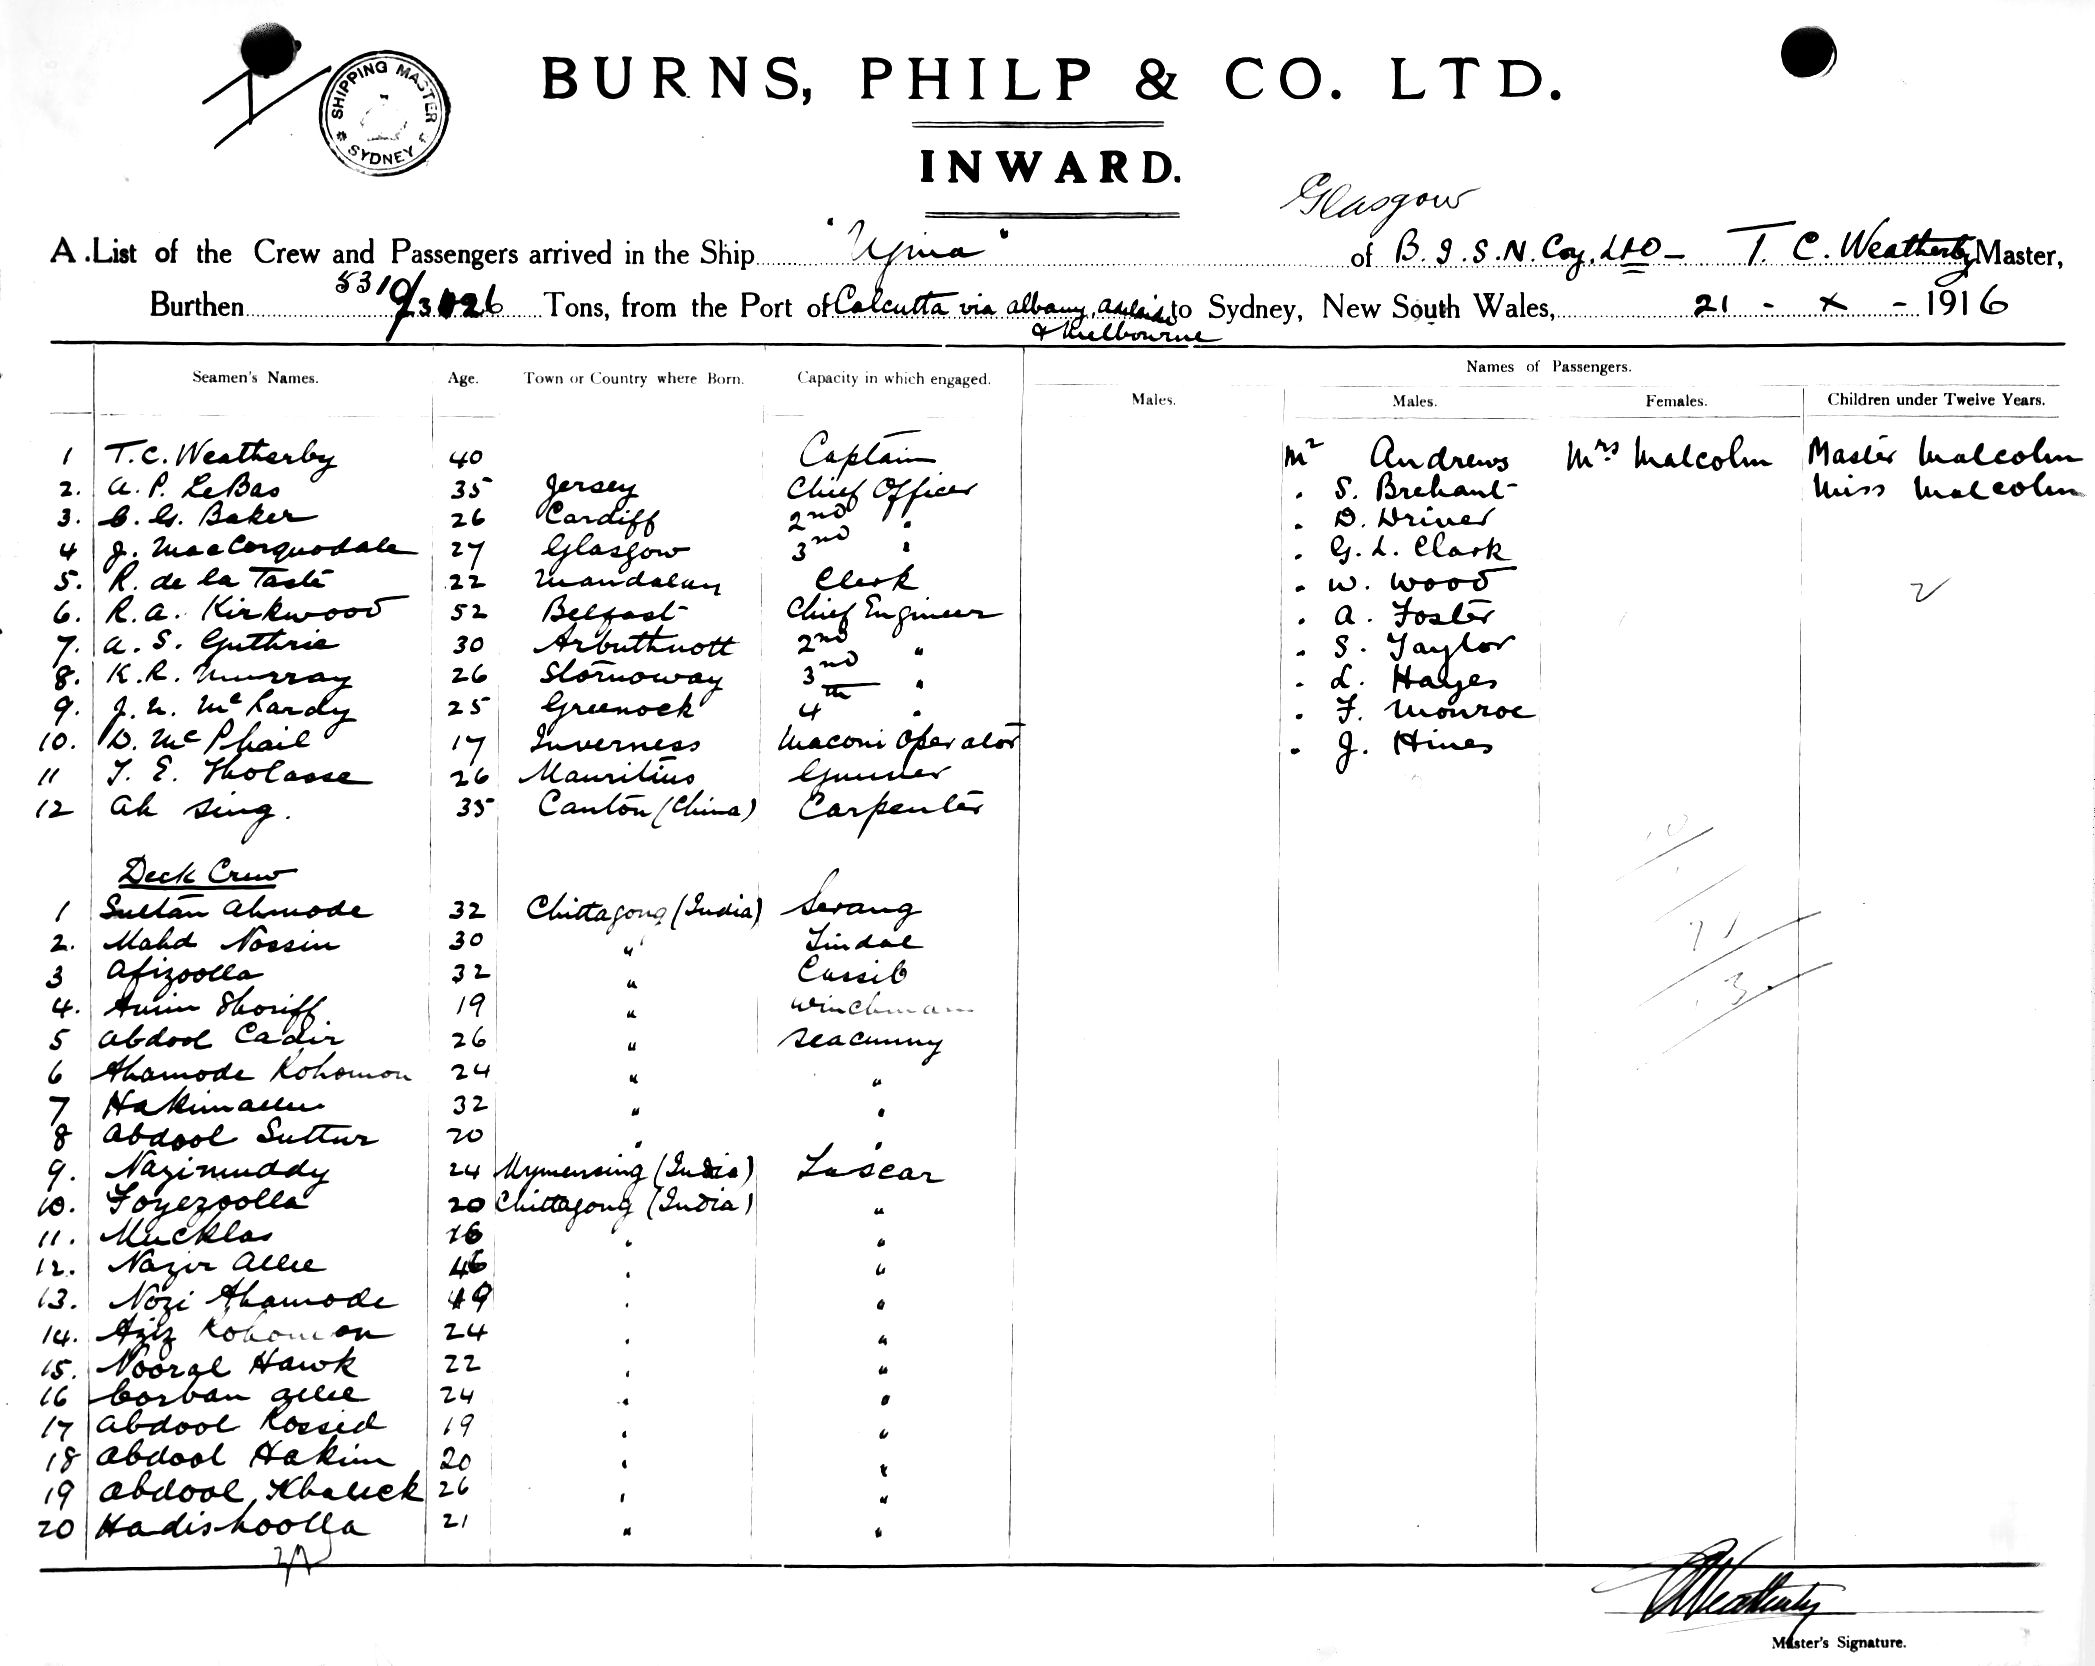 SHIPPING MASTER SYDNEY
BURNS, PHILP & CO. LTD.
INWARD.
Glasgow
A List of the Crew and Passengers arrived in the Ship "Ujina" of B.I.S.N. Coy. Ltd - T. C. Weatherby Master,
Burthen 5310/3026 Tons, from the Port of Calcutta via Albany, Adelaide & Melbourne to Sydney, New South Wales, 21 - X - 1916
Seamen's Names. Age. Town or Country where Born. Capacity in which engaged. Names of Passengers.
Males. Males. Females. Children under Twelve Years.
1 T.C. Weatherby 40 Captain Mr Andrews Mrs Malcolm Master Malcolm
2. A. P. LeBas 35 Jersey Chief Officer " S. Brehaut Miss Malcolm
3. C. G. Baker 26 Cardiff 2nd " " D. Driver
4 J. MacCorquodale 27 Glasgow 3rd " " G. L. Clark
5. R. de la Taste 22 Mandalay Clerk " W. Wood 2
6. R. A. Kirkwood 52 Belfast Chief Engineer " A. Foster
7. A. S. Guthrie 30 Arbuthnott 2nd " " S. Taylor
8. K. R. Murray 26 Stornoway 3rd " " L. Hayes
9. J. McLardy 25 Greenock 4th " " F. Monroe
10. D. McPhail 17 Inverness Maconi Operator " J. Hines
11 T. E. Tholasse 26 Mauritius Gunner
12 Ah Sing. 35 Canton (China) Carpenter
Deck Crew
1 Sultan Ahmode 32 Chittagong (India) Serang
2. Mahd Nossin 30 " Tindal
3 Afizoolla 32 " Cassib
4. Amin Shoriff 19 " Winchman
5 Abdool Cadir 26 " Seacunny
6 Ahamode Rohomon 24 " "
7 Hakimallee 32 " "
8 Abdool Suttur 20 " "
9. Nazimuddy 24 Mymensing (India) Lascar
10. Foyezoolla 20 Chittagong (India) "
11. Mucklas " "
12. Nazir Allee 46 " "
13. Nozi Ahamode 49 " "
14. Aziz Rohomon 24 " "
15. Nooral Hawk 22 " "
16 Corban Allee 24 " "
17 Abdool Rossid 19 " "
18 Abdool Hakim 20 " "
19 Abdool Khalick 26 " "
20 Hadishoolla 21 " "
TCWeatherby
Master's Signature.